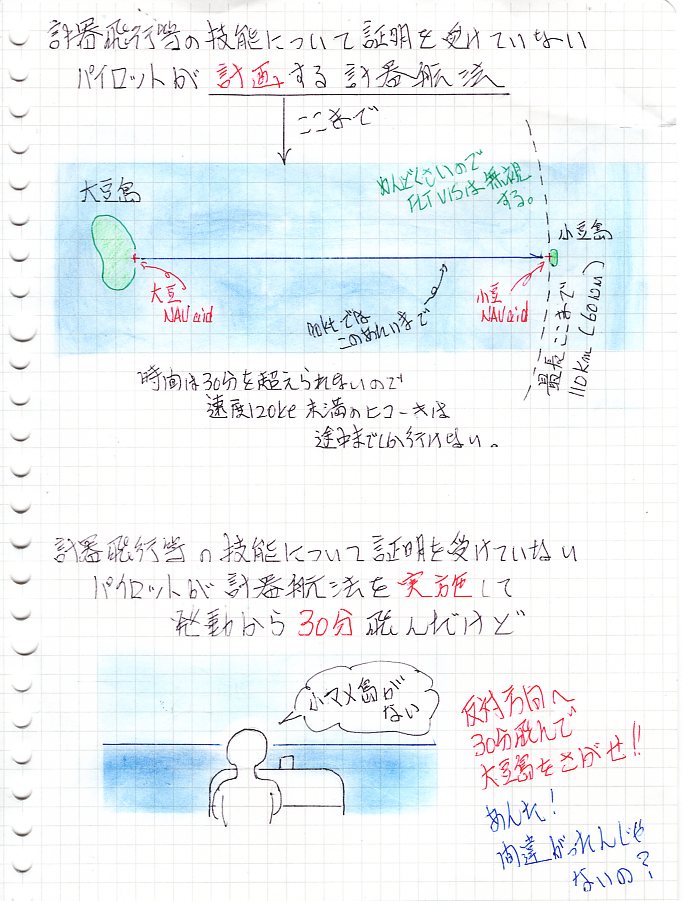 計器飛行等の技能について証明を受けていない
パイロットが計画する計器航法
ここまで
大豆島
めんどくさいので
FLT VISは無視
する。
小豆島
大豆
NAV aid
小豆
NAV aid
90ktでは
このへんいまで
最長ここまで
110km (60NM)
時間は30分を超えられないので
速度120kt未満のヒコーキは
途中までしか行けない。
計器飛行等の技能について証明を受けていない
パイロットが計器航法を実施して
発動から30分飛んだけど
小マメ島が
ない
反対方向へ
30分飛んで
大豆島をさがせ!!
あんた!
間違がったんじゃ
ないの?